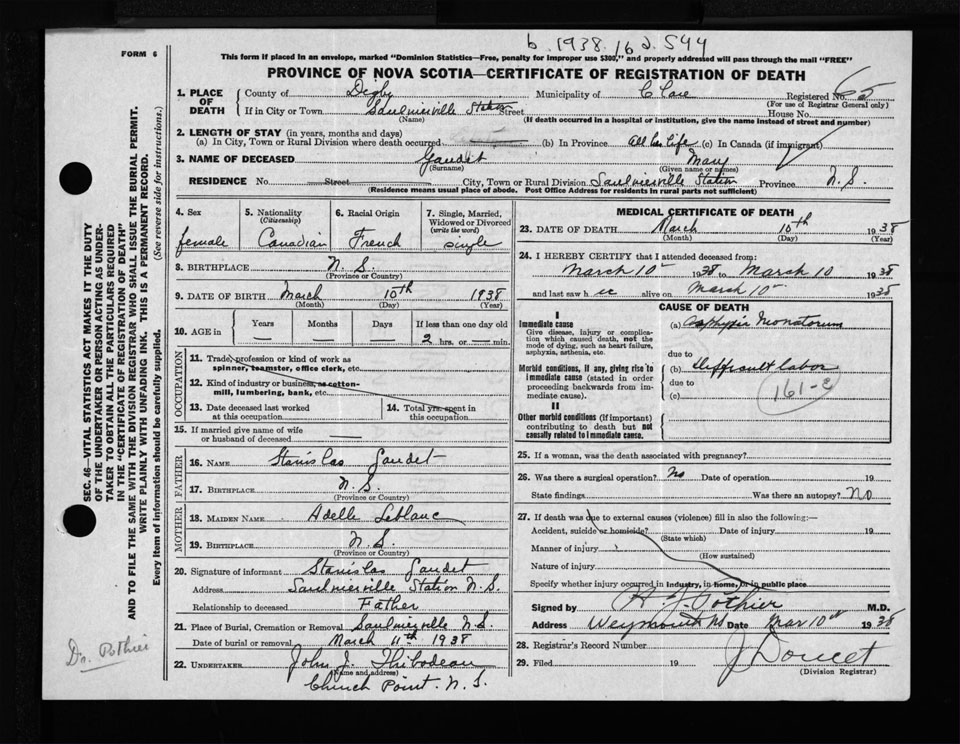 b. 1938. 16 d. 544
FORM 6
This form if placed in an envelope, marked "Dominion Statistics—Free, penalty for improper use $300," and properly addressed will pass through the mail "FREE"
PROVINCE OF NOVA SCOTIA—CERTIFICATE OF REGISTRATION OF DEATH
1. PLACE OF DEATH County of Digby Municipality of Clare Registered No. 65
(For use of Registrar General only)
If in City or Town Saulnierville Station Street House No.
(Name) (If death occurred in a hospital or institution, give the name instead of street and number)
2. LENGTH OF STAY (in years, months and days)
(a) In City, Town or Rural Division where death occurred (b) In Province all his life (c) In Canada (if immigrant)
3. NAME OF DECEASED Gaudet Mary
(Surname) (Given name or names)
RESIDENCE No. Street City, Town or Rural Division Saulnierville Station Province N.S.
(Residence means usual place of abode. Post Office Address for residents in rural parts not sufficient)
4. Sex 5. Nationality 6. Racial Origin 7. Single, Married, Widowed or Divorced
(Citizenship) (write the word)
female Canadian French single
8. BIRTHPLACE N.S.
(Province or Country)
9. DATE OF BIRTH March 10th 1938
(Month) (Day) (Year)
10. AGE in Years Months Days If less than one day old
— — — 2 hrs. or — min.
OCCUPATION
11. Trade, profession or kind of work as spinner, teamster, office clerk, etc.
12. Kind of industry or business, as cotton-mill, lumbering, bank, etc.
13. Date deceased last worked at this occupation
14. Total yrs. spent in this occupation
15. If married give name of wife or husband of deceased —
FATHER
16. NAME Stanislas Gaudet
17. BIRTHPLACE N.S.
(Province or Country)
MOTHER
18. MAIDEN NAME Adelle Leblanc
19. BIRTHPLACE N.S.
(Province or Country)
20. Signature of informant Stanislas Gaudet
Address Saulnierville Station N.S.
Relationship to deceased Father
21. Place of Burial, Cremation or Removal Saulnierville N.S.
Date of burial or removal March 11th 1938
22. UNDERTAKER John J. Thibodeau
(Name and address)
Church Point. N.S.
MEDICAL CERTIFICATE OF DEATH
23. DATE OF DEATH March 10th 1938
(Month) (Day) (Year)
24. I HEREBY CERTIFY that I attended deceased from:
March 10 1938 to March 10 1938
and last saw h alive on March 10 1938
CAUSE OF DEATH
I
Immediate cause
Give disease, injury or complication which caused death, not the mode of dying, such as heart failure, asphyxia, asthenia, etc.
(a) Asphyxia Neonatorum
due to
Morbid conditions, if any, giving rise to immediate cause (stated in order proceeding backwards from immediate cause).
(b) difficult labor
due to
(c)
161-2
II
Other morbid conditions (if important) contributing to death but not causally related to immediate cause.
25. If a woman, was the death associated with pregnancy?
26. Was there a surgical operation? No Date of operation 19
State findings Was there an autopsy? No
27. If death was due to external causes (violence) fill in also the following:—
Accident, suicide or homicide? Date of injury 19
(State which)
Manner of injury
(How sustained)
Nature of injury
Specify whether injury occurred in industry, in home, or in public place
Signed by Pothier M.D.
Address Weymouth NS Date Mar 10th 1938
28. Registrar's Record Number
29. Filed 19 J Doucet
(Division Registrar)
SEC. 46—VITAL STATISTICS ACT MAKES IT THE DUTY
OF THE UNDERTAKER OR PERSON ACTING AS UNDERTAKER TO OBTAIN ALL THE PARTICULARS REQUIRED
IN THE "CERTIFICATE OF REGISTRATION OF DEATH"
AND TO FILE THE SAME WITH THE DIVISION REGISTRAR WHO SHALL ISSUE THE BURIAL PERMIT.
WRITE PLAINLY WITH UNFADING INK. THIS IS A PERMANENT RECORD.
Every item of information should be carefully supplied. (See reverse side for instructions.)
Dr. Pothier